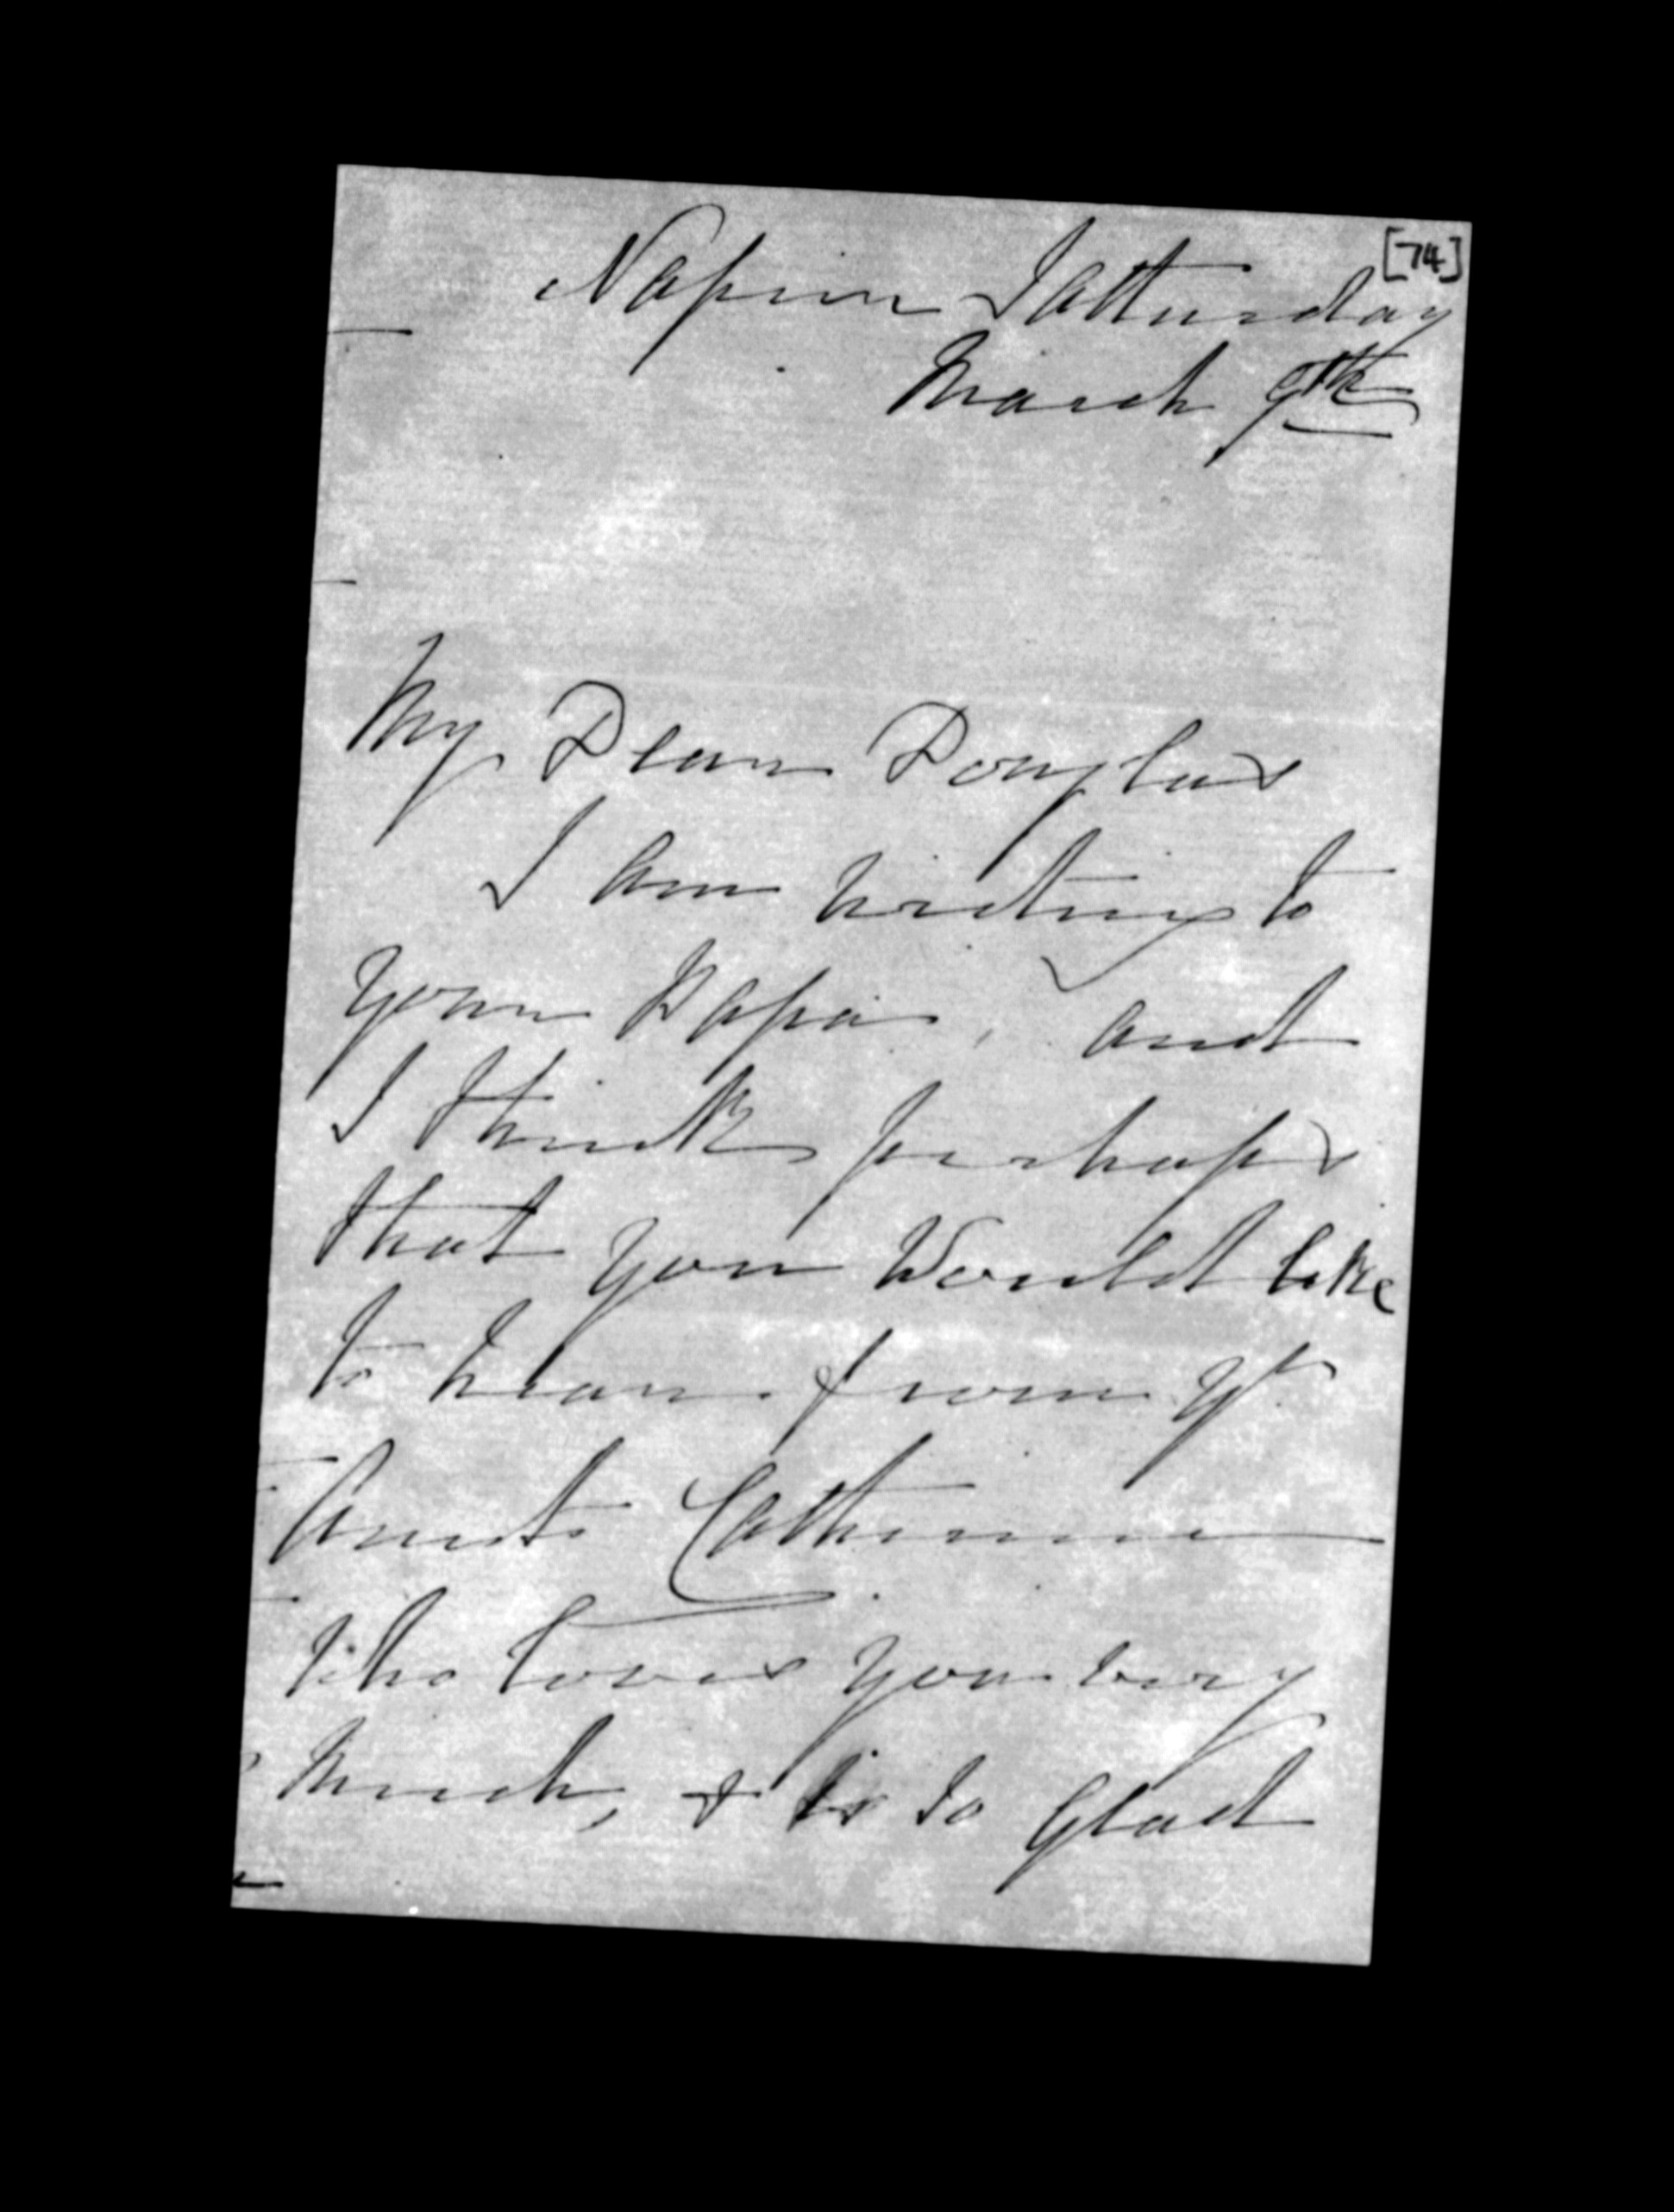 [74]
Napier Satturday
March 9th
My Dear Douglas
I am writing to
your Papa, and
I think perhaps
that you Would like
to hear from yr
Aunt Catherine
who loves you very
much, & is so glad